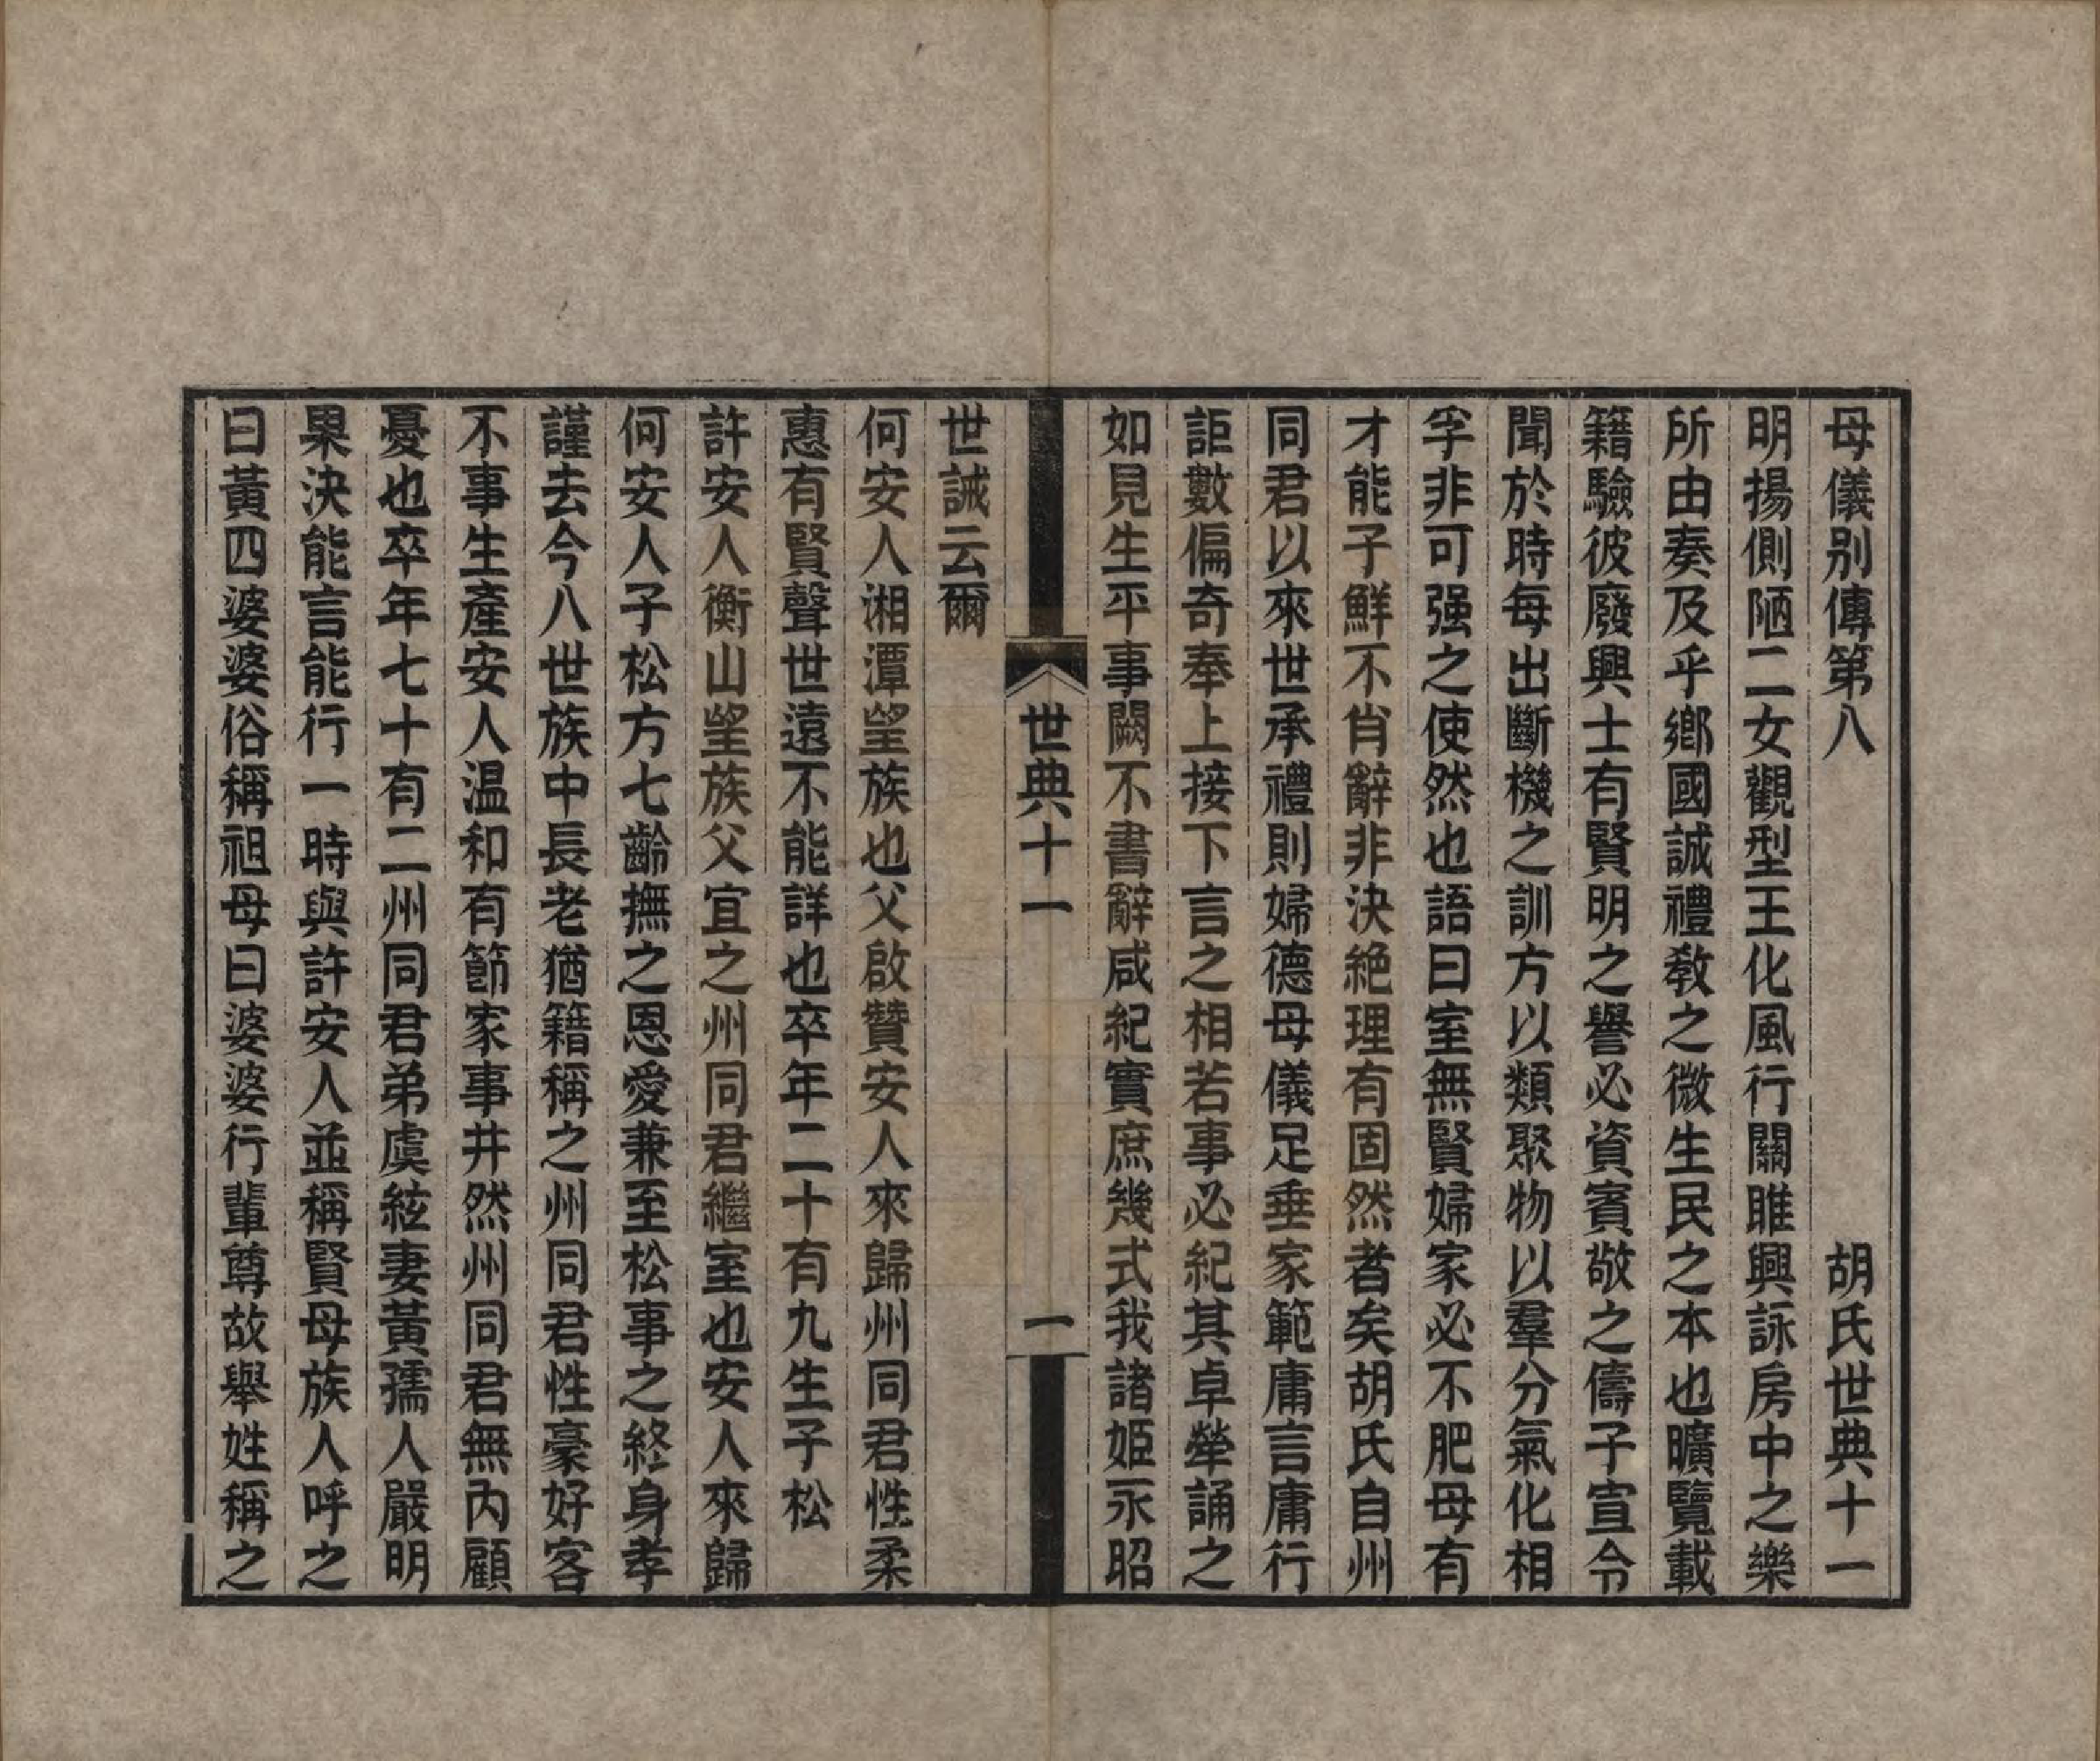 母儀別傳第八　　　　　　　　胡氏世典十一
明揚側陋二女觀型王化風行關雎興詠房中之樂
所由奏及乎鄉國誠禮教之微生民之本也曠覽載
籍驗彼廢興士有賢明之譽必資賓敬之儔子宣令
聞於時每出斷機之訓方以類聚物以羣分氣化相
孚非可强之使然也語曰室無賢婦家必不肥母有
才能子鮮不肖辭非決絶理有固然者矣胡氏自州
同君以來世承禮則婦德母儀足垂家範庸言庸行
詎數偏奇奉上接下言之相若事必紀其卓犖誦之
如見生平事闕不書辭咸紀實庶幾式我諸姬永昭
世典十一
一
世誡云爾
何安人湘潭望族也父啟贊安人來歸州同君性柔
惠有賢聲世遠不能詳也卒年二十有九生子松
許安人衡山望族父宜之州同君繼室也安人來歸
何安人子松方七齡撫之恩愛兼至松事之終身孝
謹去今八世族中長老猶籍稱之州同君性豪好客
不事生產安人温和有節家事井然州同君無內顧
憂也卒年七十有二州同君弟虞絃妻黃孺人嚴明
果決能言能行一時與許安人並稱賢母族人呼之
曰黃四婆婆俗稱祖母曰婆婆行輩尊故舉姓稱之